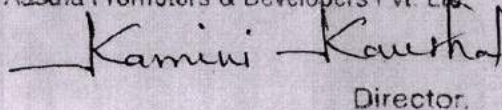 Promoters & Developers Pvt. Ltd.
Kamini Kaushal
Director.